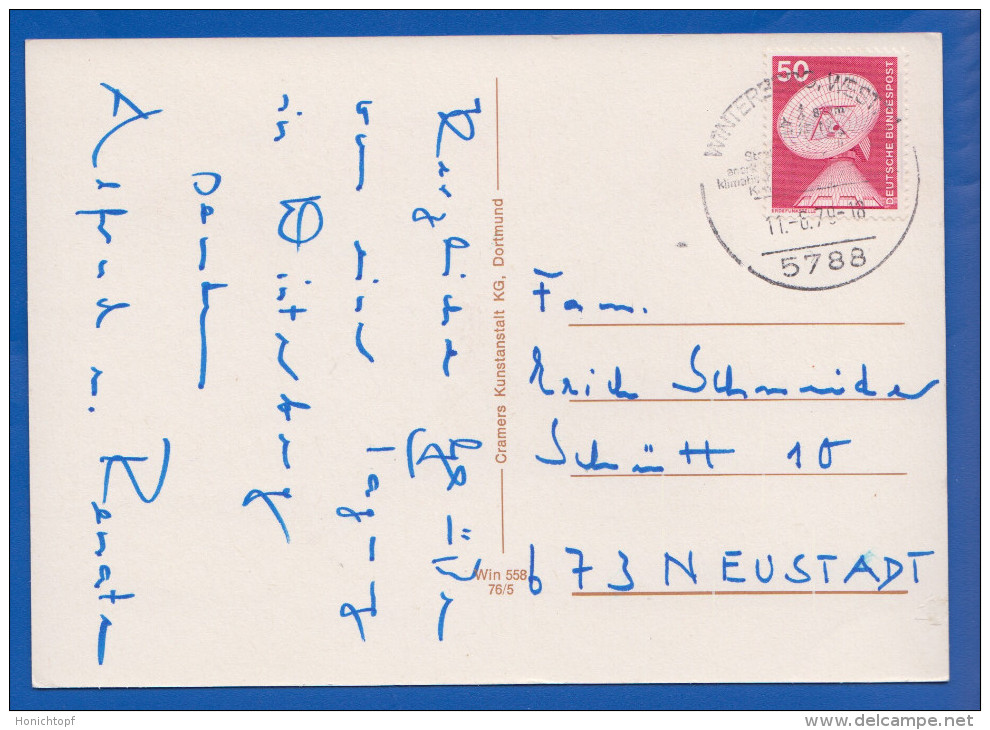 50
DEUTSCHE BUNDESPOST
ERDEFUNKSTELLE
WINTERBERG, WESTF
11.-6.79-18
5788
Herzliche Grüße
von einer Tagung
in Winterberg
senden
u. Renate
Cramers Kunstanstalt KG, Dortmund
Win 558
76/5
Fam.
Erich Schneider
Schütt 10
673 NEUSTADT
Honichtopf
www.delcampe.net